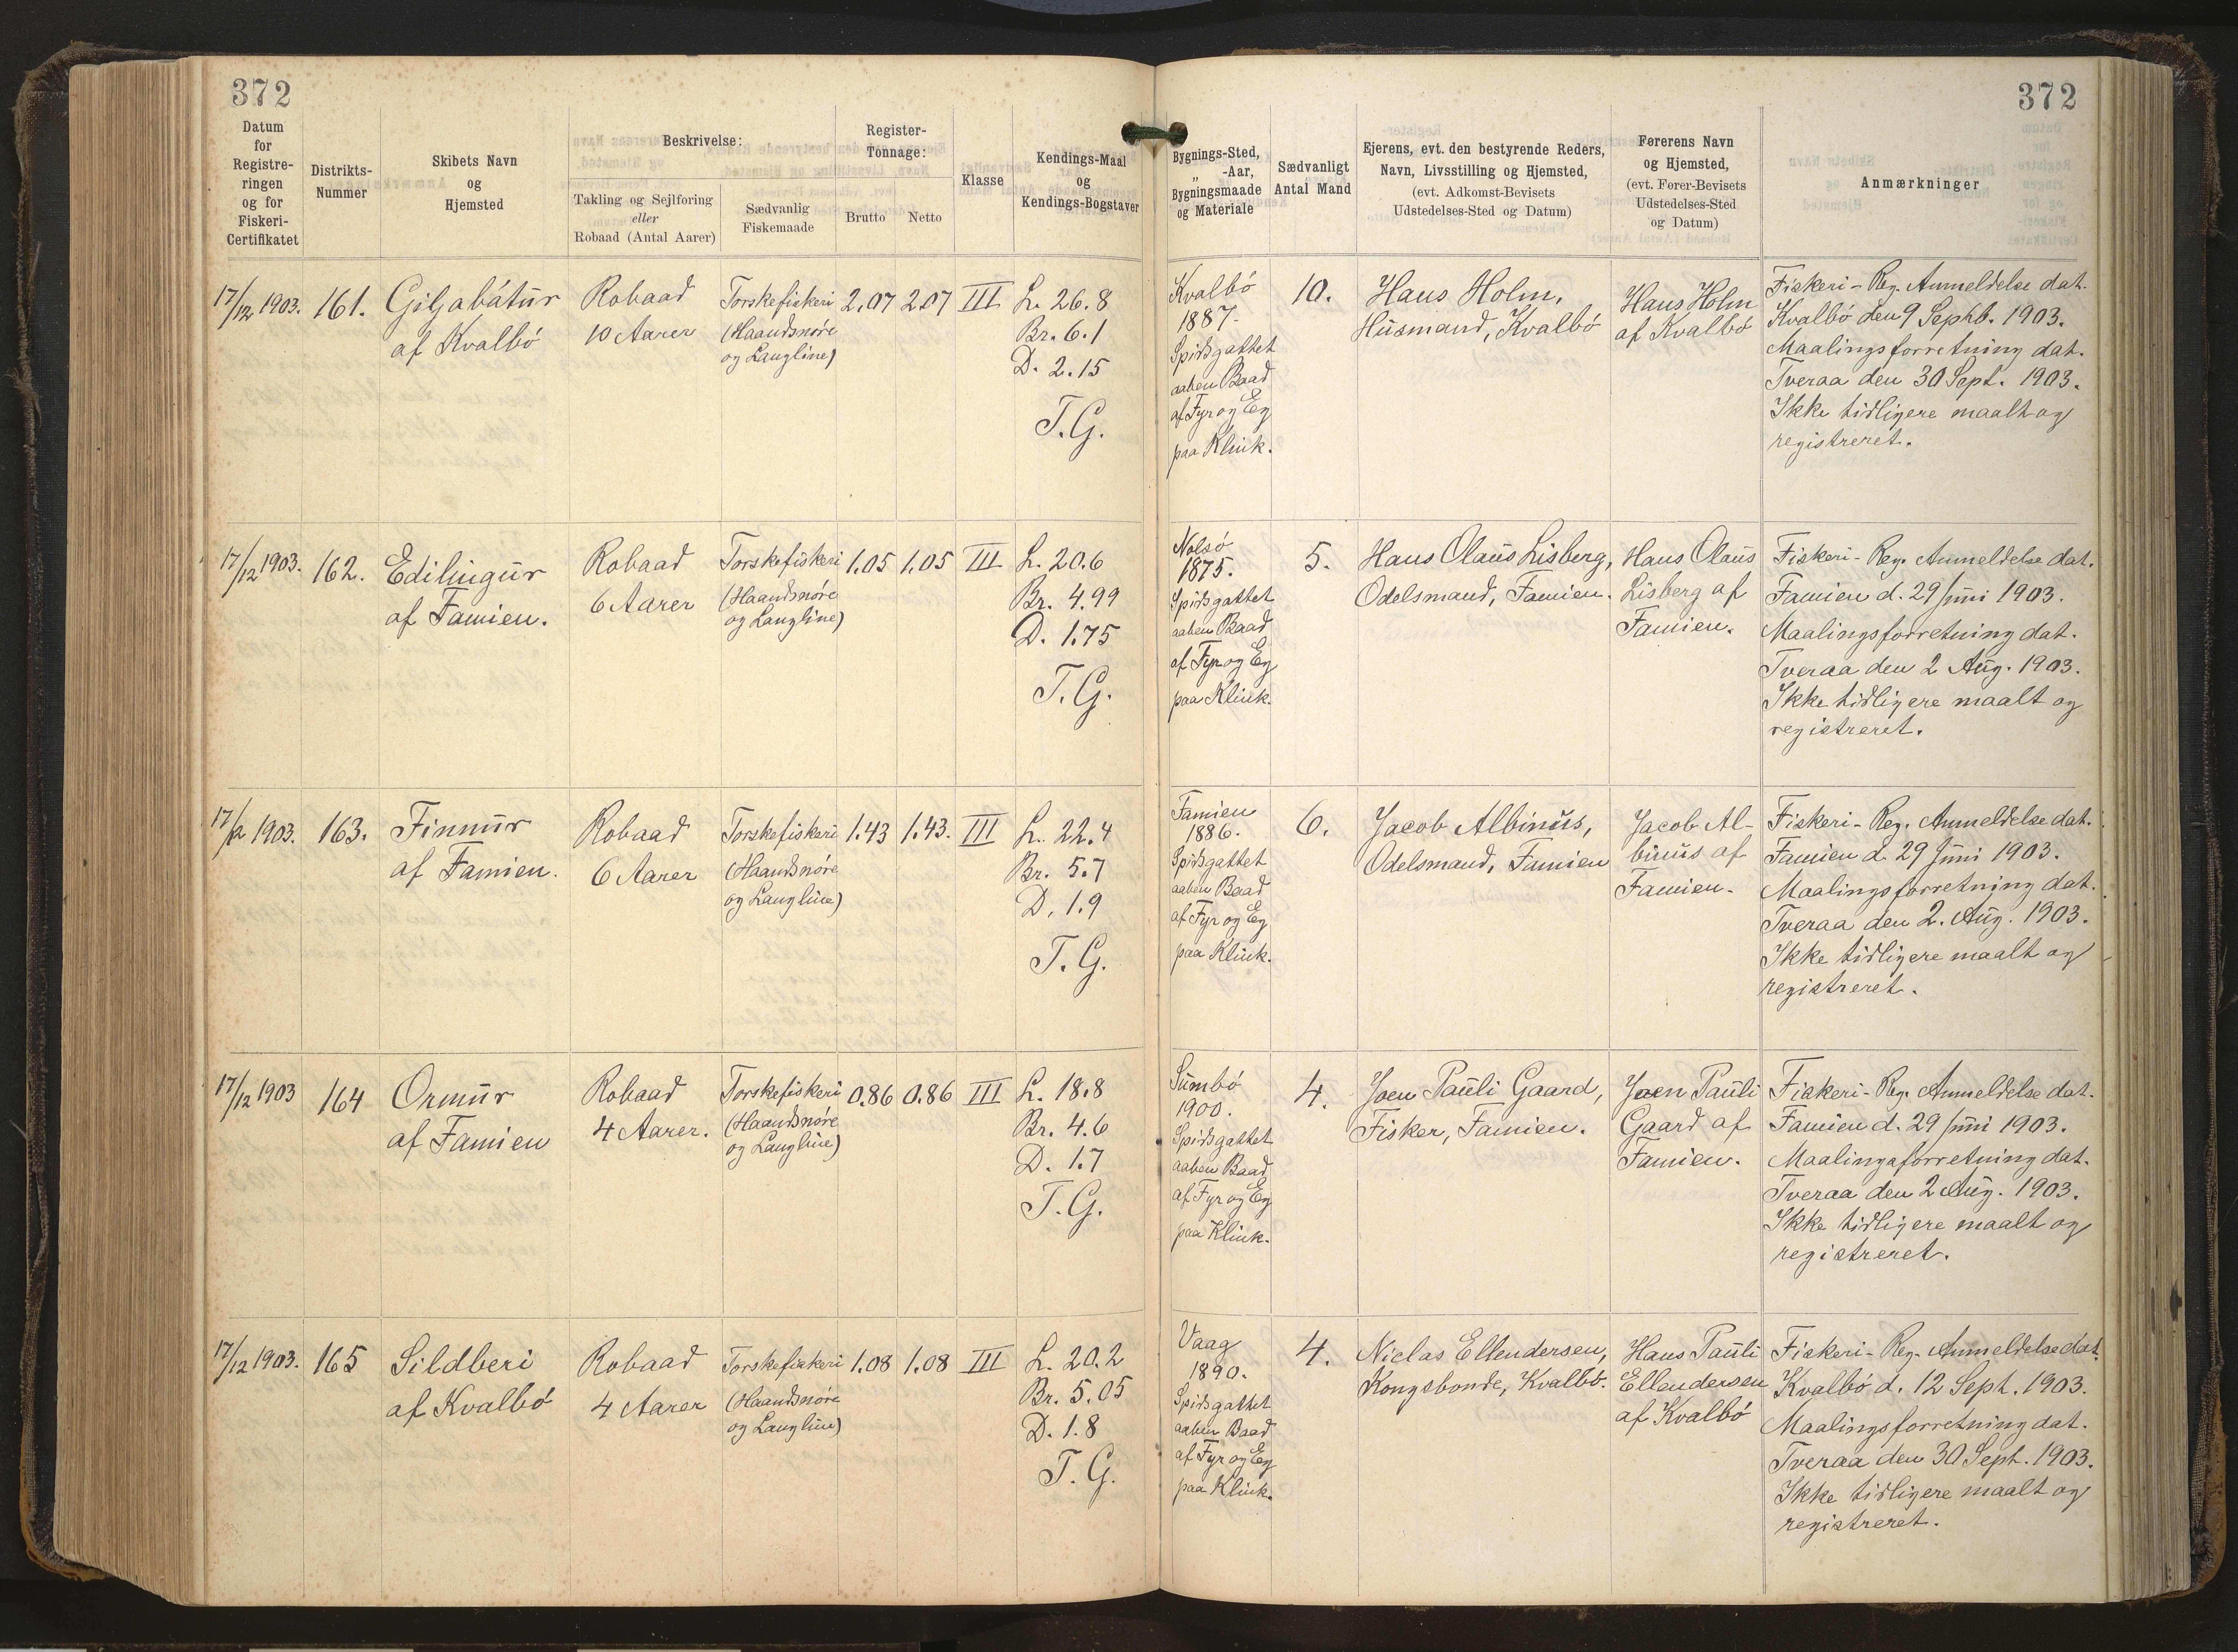 372
372
Datum
for
Registre-
ringen
og for
Fiskeri-
Certifikatet
Distrikts-
Nummer
Skibets Navn
og
Hjemsted
Beskrivelse:
Takling og Sejlforing
eller
Robaad (Antal Aarer)
Sædvanlig
Fiskemaade
Register-
Tonnage:
Brutto
Netto
Klasse
Kendings-Maal
og
Kendings-Bogstaver
Bygnings-Sted,
„ -Aar,
Bygningsmaade
og Materiale
Sædvanligt
Antal Mand
Ejerens, evt. den bestyrende Reders,
Navn, Livsstilling og Hjemsted,
(evt. Adkomst-Bevisets
Udstedelses-Sted og Datum)
Førerens Navn
og Hjemsted,
(evt. Fører-Bevisets
Udstedelses-Sted
og Datum)
Anmærkninger
17/12 1903.
161.
Giljabátur
af Kvalbó
Robaad
10 Aarer
Torskefiskeri
(Haandsnöre
og Langline)
2.07
2.07
III
L. 26.8
Br. 6.1
D. 2.15
T.G.
Kvalbó
1887.
Spidsgattet
aaben Baad
af Fyr og Eg
paa Klink.
10.
Hans Holm,
Husmand, Kvalbó
Hans Holm
af Kvalbó
Fiskeri-Reg. Anmeldelse dat.
Kvalbó den 9 Septb. 1903.
Maalingsforretning dat.
Tveraa den 30 Sept. 1903.
Ikke tidligere maalt og
registreret.
17/12 1903.
162.
Edilingur
af Famien.
Robaad
6 Aarer
Torskefiskeri
(Haandsnöre
og Langline)
1.05
1.05
III
L. 20.6
Br. 4.99
D. 1.75
T.G.
Nolsó
1875.
Spidsgattet
aaben Baad
af Fyr og Eg
paa Klink.
5.
Hans Olaus Lisberg,
Odelsmand, Famien.
Hans Olaus
Lisberg af
Famien.
Fiskeri-Reg. Anmeldelse dat.
Famien d. 29 Juni 1903.
Maalingsforretning dat.
Tveraa den 2 Aug. 1903.
Ikke tidligere maalt og
registreret.
17/12 1903.
163.
Finnur
af Famien.
Robaad
6 Aarer
Torskefiskeri
(Haandsnöre
og Langline)
1.43
1.43.
III
L. 22.4
Br. 5.7
D. 1.9
T.G.
Famien
1886.
Spidsgattet
aaben Baad
af Fyr og Eg
paa Klink.
6.
Jacob Albinus,
Odelsmand, Famien
Jacob Al-
binus af
Famien.
Fiskeri-Reg. Anmeldelse dat.
Famien d. 29 Juni 1903.
Maalingsforretning dat.
Tveraa den 2. Aug. 1903.
Ikke tidligere maalt og
registreret.
17/12 1903
164
Ormur
af Famien
Robaad
4 Aarer.
Torskefiskeri
(Haandsnöre
og Langline)
0.86
0.86
III
L. 18.8
Br. 4.6
D. 1.7
T.G.
Sumbó
1900.
Spidsgattet
aaben Baad
af Fyr og Eg
paa Klink.
4.
Joen Pauli Gaard,
Fisker, Famien.
Joen Pauli
Gaard af
Famien.
Fiskeri-Reg. Anmeldelse dat.
Famien d. 29 Juni 1903.
Maalingsforretning dat.
Tveraa den 2 Aug. 1903.
Ikke tidligere maalt og
registreret.
17/12 1903.
165
Sildberi
af Kvalbó
Robaad
4 Aarer
Torskefiskeri
(Haandsnöre
og Langline)
1.08
1.08
III
L. 20.2
Br. 5.05
D. 1.8
T.G.
Vaag
1890.
Spidsgattet
aaben Baad
af Fyr og Eg
paa Klink.
4.
Niclas Ellendersen,
Kongsbonde, Kvalbó.
Hans Pauli
Ellendersen
af Kvalbó
Fiskeri-Reg. Anmeldelse dat.
Kvalbó d. 12 Sept. 1903.
Maalingsforretning dat.
Tveraa den 30 Sept. 1903.
Ikke tidligere maalt og
registreret.